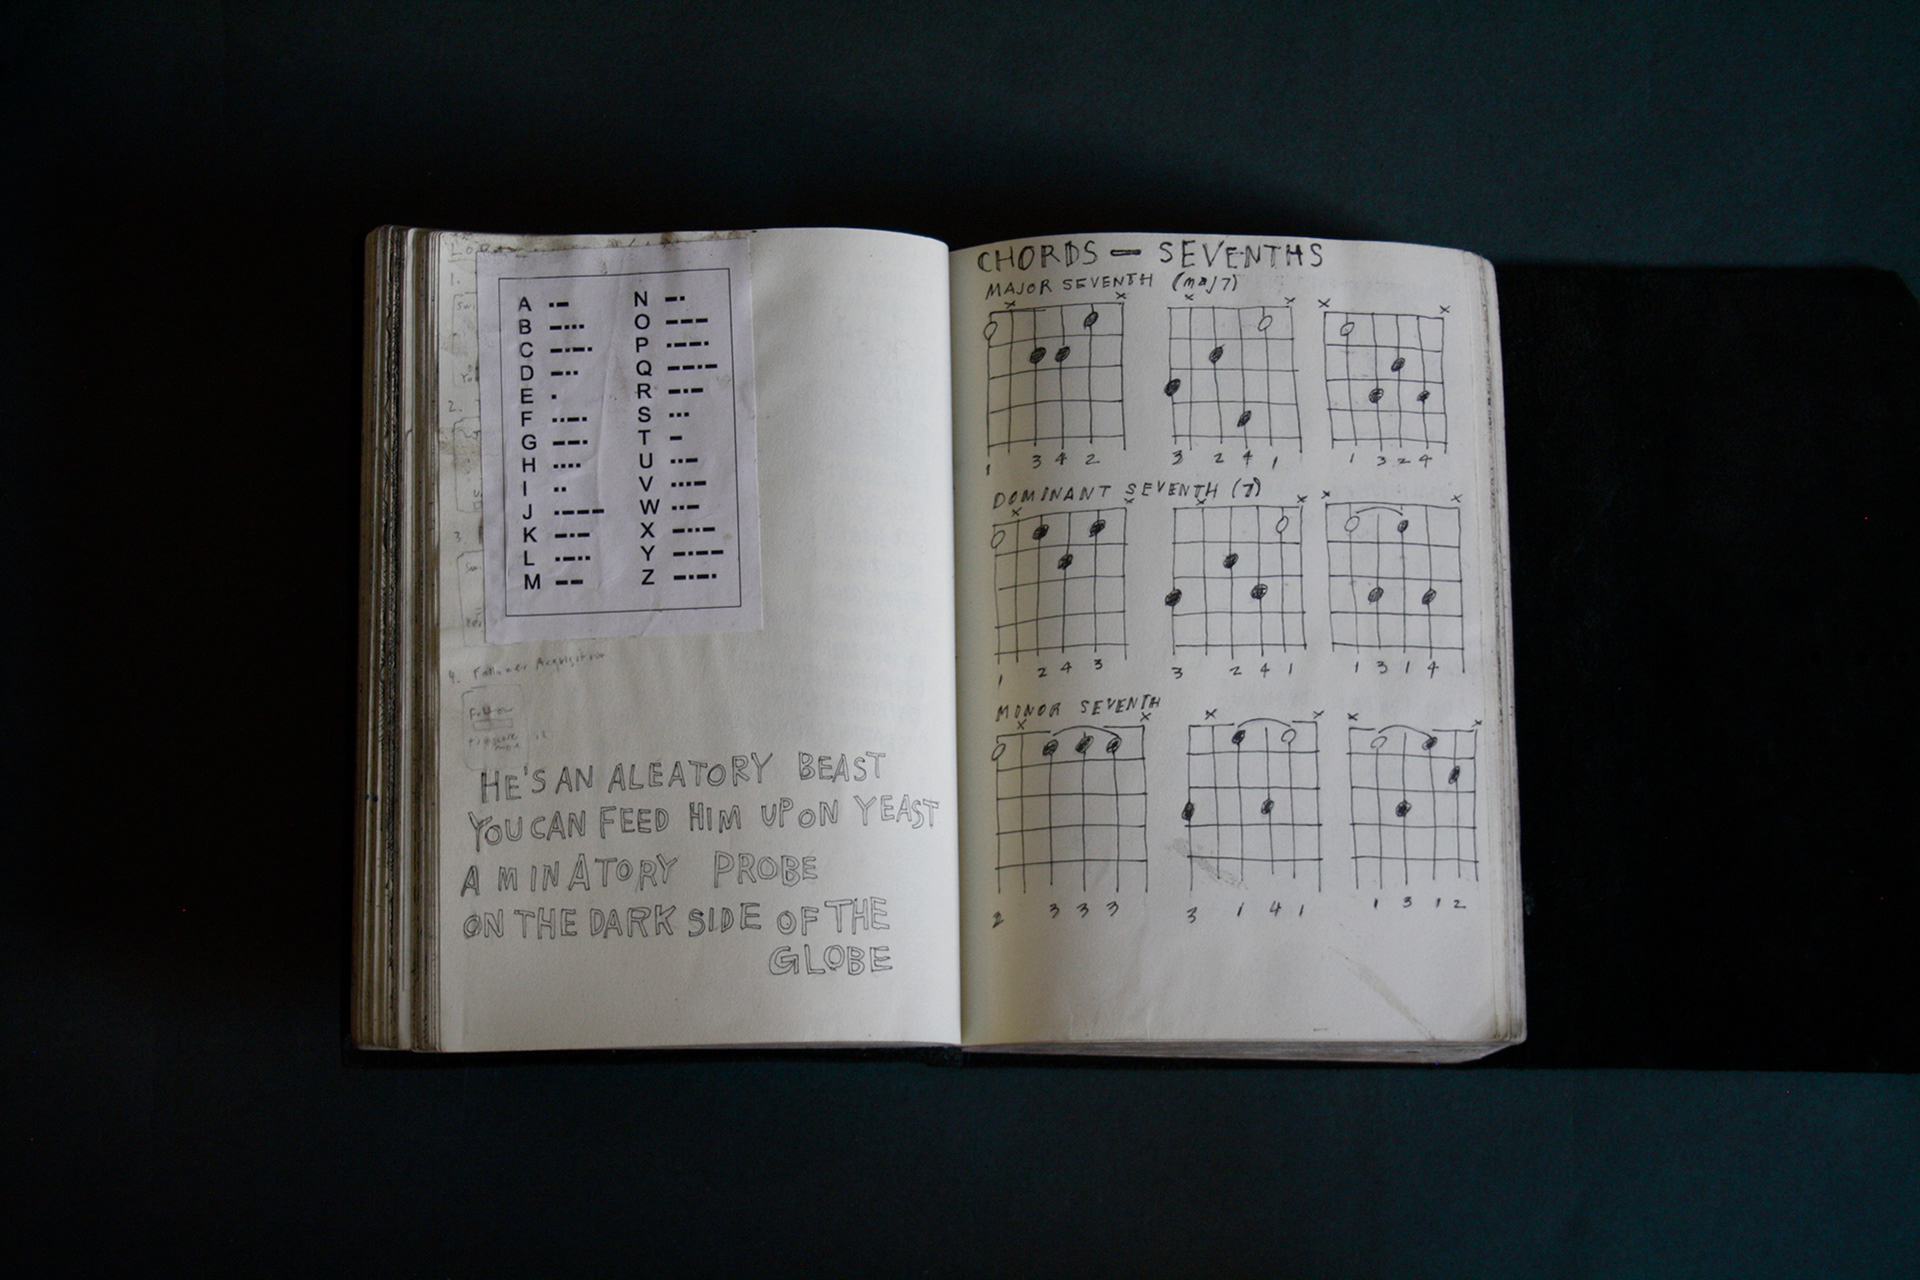 1.
A ·-
B -···
C -·-·
D -··
E ·
F ··-·
G --·
H ····
I ··
J ·---
K -·-
L ·-··
M --
N -·
O ---
P ·--·
Q --·-
R -·-
S ···
T -
U ··-
V ···-
W ··-
X -··-
Y -·--
Z -·-·
2.
3.
4. Follower Acquisition
Follow
HE'S AN ALEATORY BEAST
YOU CAN FEED HIM UPON YEAST
A MINATORY PROBE
ON THE DARK SIDE OF THE
GLOBE
CHORDS — SEVENTHS
MAJOR SEVENTH (maj7)
x x x x x x
1 3 4 2 3 2 4 1 1 3 2 4
DOMINANT SEVENTH (7)
x x x x x x
1 2 4 3 3 2 4 1 1 3 1 4
MINOR SEVENTH
x x x x x x
2 3 3 3 3 1 4 1 1 3 1 2